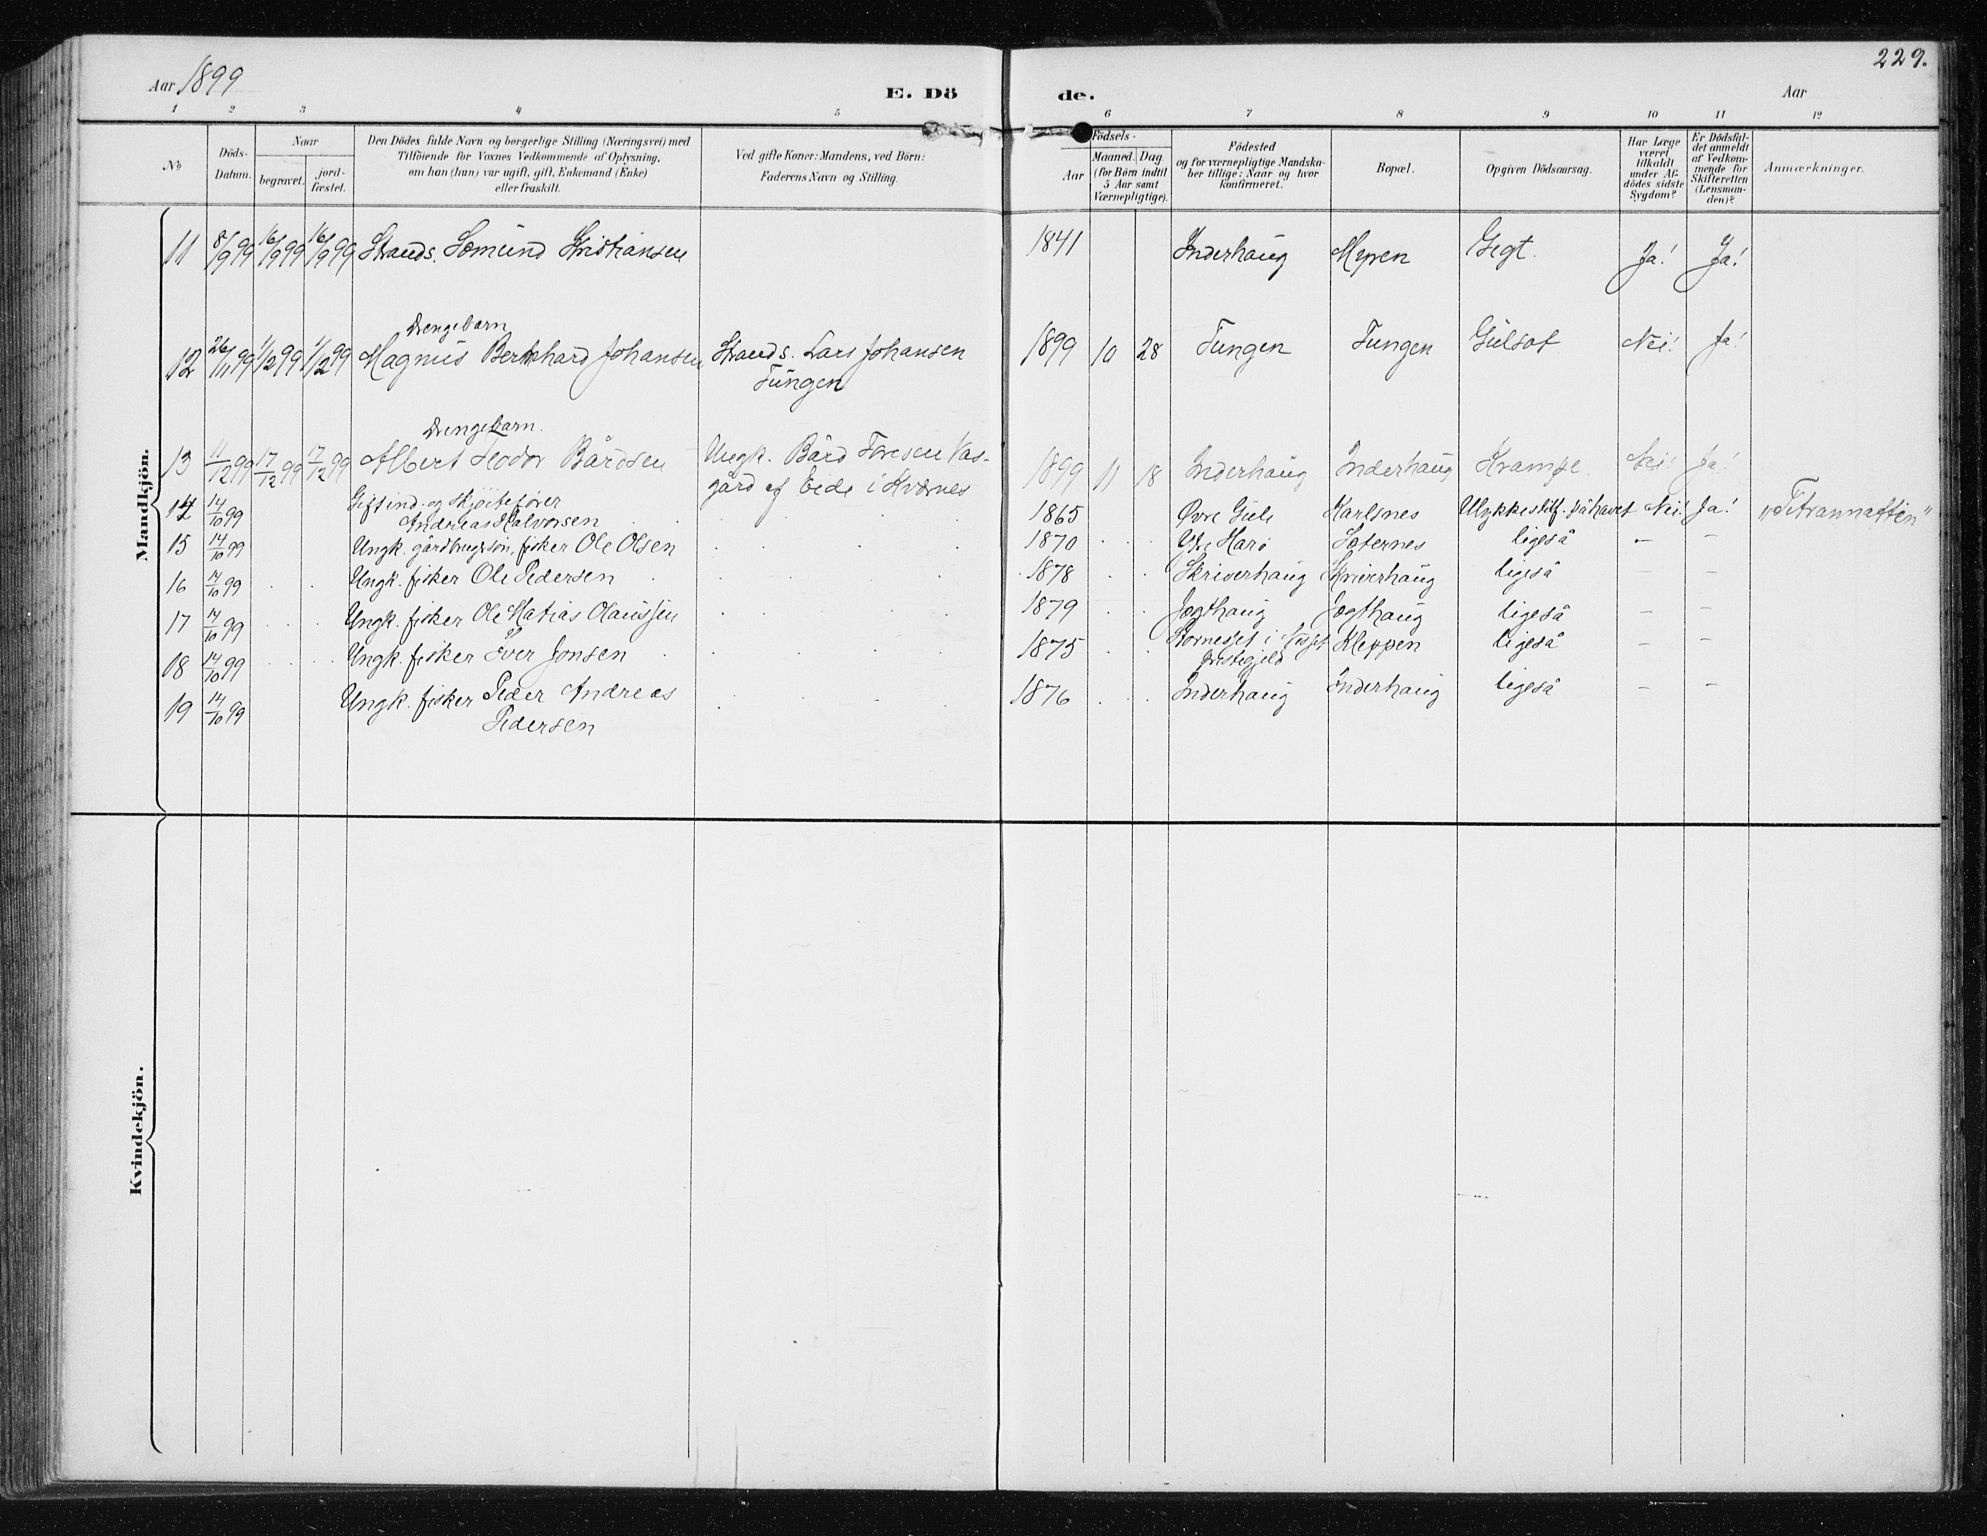 Aar 1899
E. Dö
de.
Aar
229.
1 2 3 4 5 6 7 8 9 10 11 12
No
Döds-
Datum.
Naar
begravet.
jord-
fæstet.
Den Dödes fulde Navn og borgerlige Stilling (Næringsvei) med
Tilföiende for Voxnes Vedkommende af Oplysning,
om han (hun) var ugift, gift, Enkemand (Enke)
eller fraskilt.
Ved gifte Koner: Mandens, ved Börn:
Faderens Navn og Stilling.
Födsels-
Aar
Maaned. Dag.
(for Börn indtil
5 Aar samt
Værnepligtige).
Födested
og for værnepligtige Mandska-
ber tillige: Naar og hvor
konfirmeret.
Bopæl.
Opgiven Dödsaarsag.
Har Læge
været
tilkaldt
under Af-
dödes sidste
Sygdom?
Er Dödsfal-
det anmeldt
af Vedkom-
mende for
Skifteretten
(Lensman-
den)?
Anmærkninger.
Mandkjön.
11 8/9 99 16/9 99 16/9 99 Strands. Sæmund Kristiansen 1841 Inderhaug Myren Gigt. Ja! Ja!
Drengebarn
12 26/11 99 1/12 99 1/12 99 Magnus Bernhard Johansen Strands. Lars Johansen 1899 10 28 Tungen Tungen Gulsot Nei! Ja!
Tungen
Drengebarn.
13 11/12 99 17/12 99 17/12 99 Albert Teodor Bårdsen Ungk. Bård Toresen Vas- 1899 11 18 Inderhaug Inderhaug Krampe. Nei! Ja!
gård af Eide i Kværnes
14 14/10 99 Gift ind. og skjøitefører
Andreas Halvorsen 1865 Øvre Gule Karlsnes Ulykkestilf. på havet Nei! Ja! "Titrannatten"
15 14/10 99 Ungk. gårdbrugssøn, fisker Ole Olsen 1870 Ydre Harø Sæternes ligeså — —
16 14/10 99 Ungk. fisker Ole Pedersen 1878 Skriverhaug Skriverhaug ligeså — —
17 14/10 99 Ungk. fisker Ole Matias Olaussen 1879 Jægthaug Jægthaug ligeså — —
18 14/10 99 Ungk. fisker Iver Jonsen 1875 i Nesset Kleppen ligeså — —
Prestegjeld
19 14/10 99 Ungk. fisker Peder Andreas 1876 Inderhaug Inderhaug ligeså — —
Pedersen
Kvindekjön.